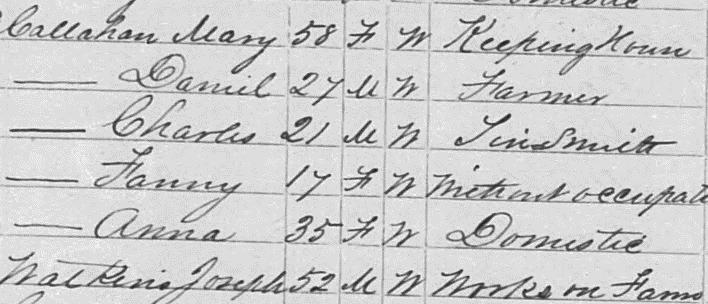 Domestic
Callahan Mary 58 F W Keeping House
— Daniel 27 M W Farmer
— Charles 21 M W Tinsmith
— Fanny 17 F W Without occupati
— Anna 35 F W Domestic
Watkins Joseph 52 M W Works on Farm